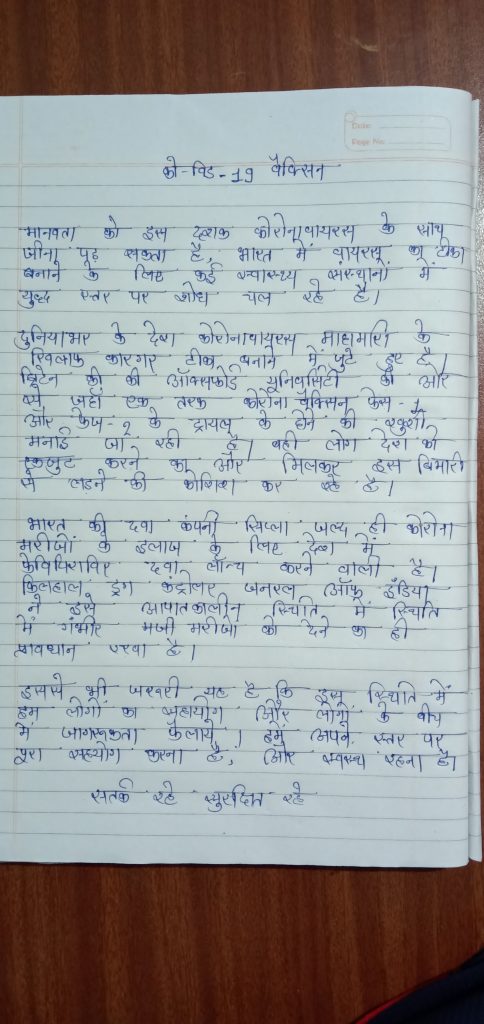 Date:
Page No:
को-विड-19 वैक्सिन
मानवता को इस दशक कोरोनावायरस के साथ
जीना पड़ सकता है, भारत में वायरस का टीका
बनाने के लिए कई स्वास्थ्य संस्थानों में
युद्ध स्तर पर शोध चल रहे है।
दुनियाभर के देश कोरोनावायरस माहामारी के
खिलाफ कारगर टीका बनाने में जुटे हुए है।
ब्रिटेन की की ऑक्सफोर्ड यूनिवर्सिटी की और
से जहाँ एक तरफ कोरोना वैक्सिन फेस-1
और फेज-2 के ट्रायल के होने की खुशी
मनाई जा रही है। वही लोग देश को
एकजुट करने का और मिलकर इस बिमारी
से लडने की कोशिश कर रहे है।
भारत की दवा कंपनी सिप्ला जल्द ही कोरोना
मरीजों के इलाज के लिए देश में
फेविपिराविर दवा लॉन्च करने वाली है।
फिलहाल ड्रग कंट्रोलर जनरल ऑफ इंडिया
ने इसे आपातकालीन स्थिति में स्थिति
में गंभीर मजी मरीजों को देने का ही
प्रावधान रखा है।
इससे भी जरूरी यह है कि इस स्थिति में
हम लोगों का सहायोग और लोगों के बीच
में जागरूकता फैलाये। हमें अपने स्तर पर
पूरा सहयोग करना है, और स्वस्थ रहना है।
सतर्क रहे सुरक्षित रहे